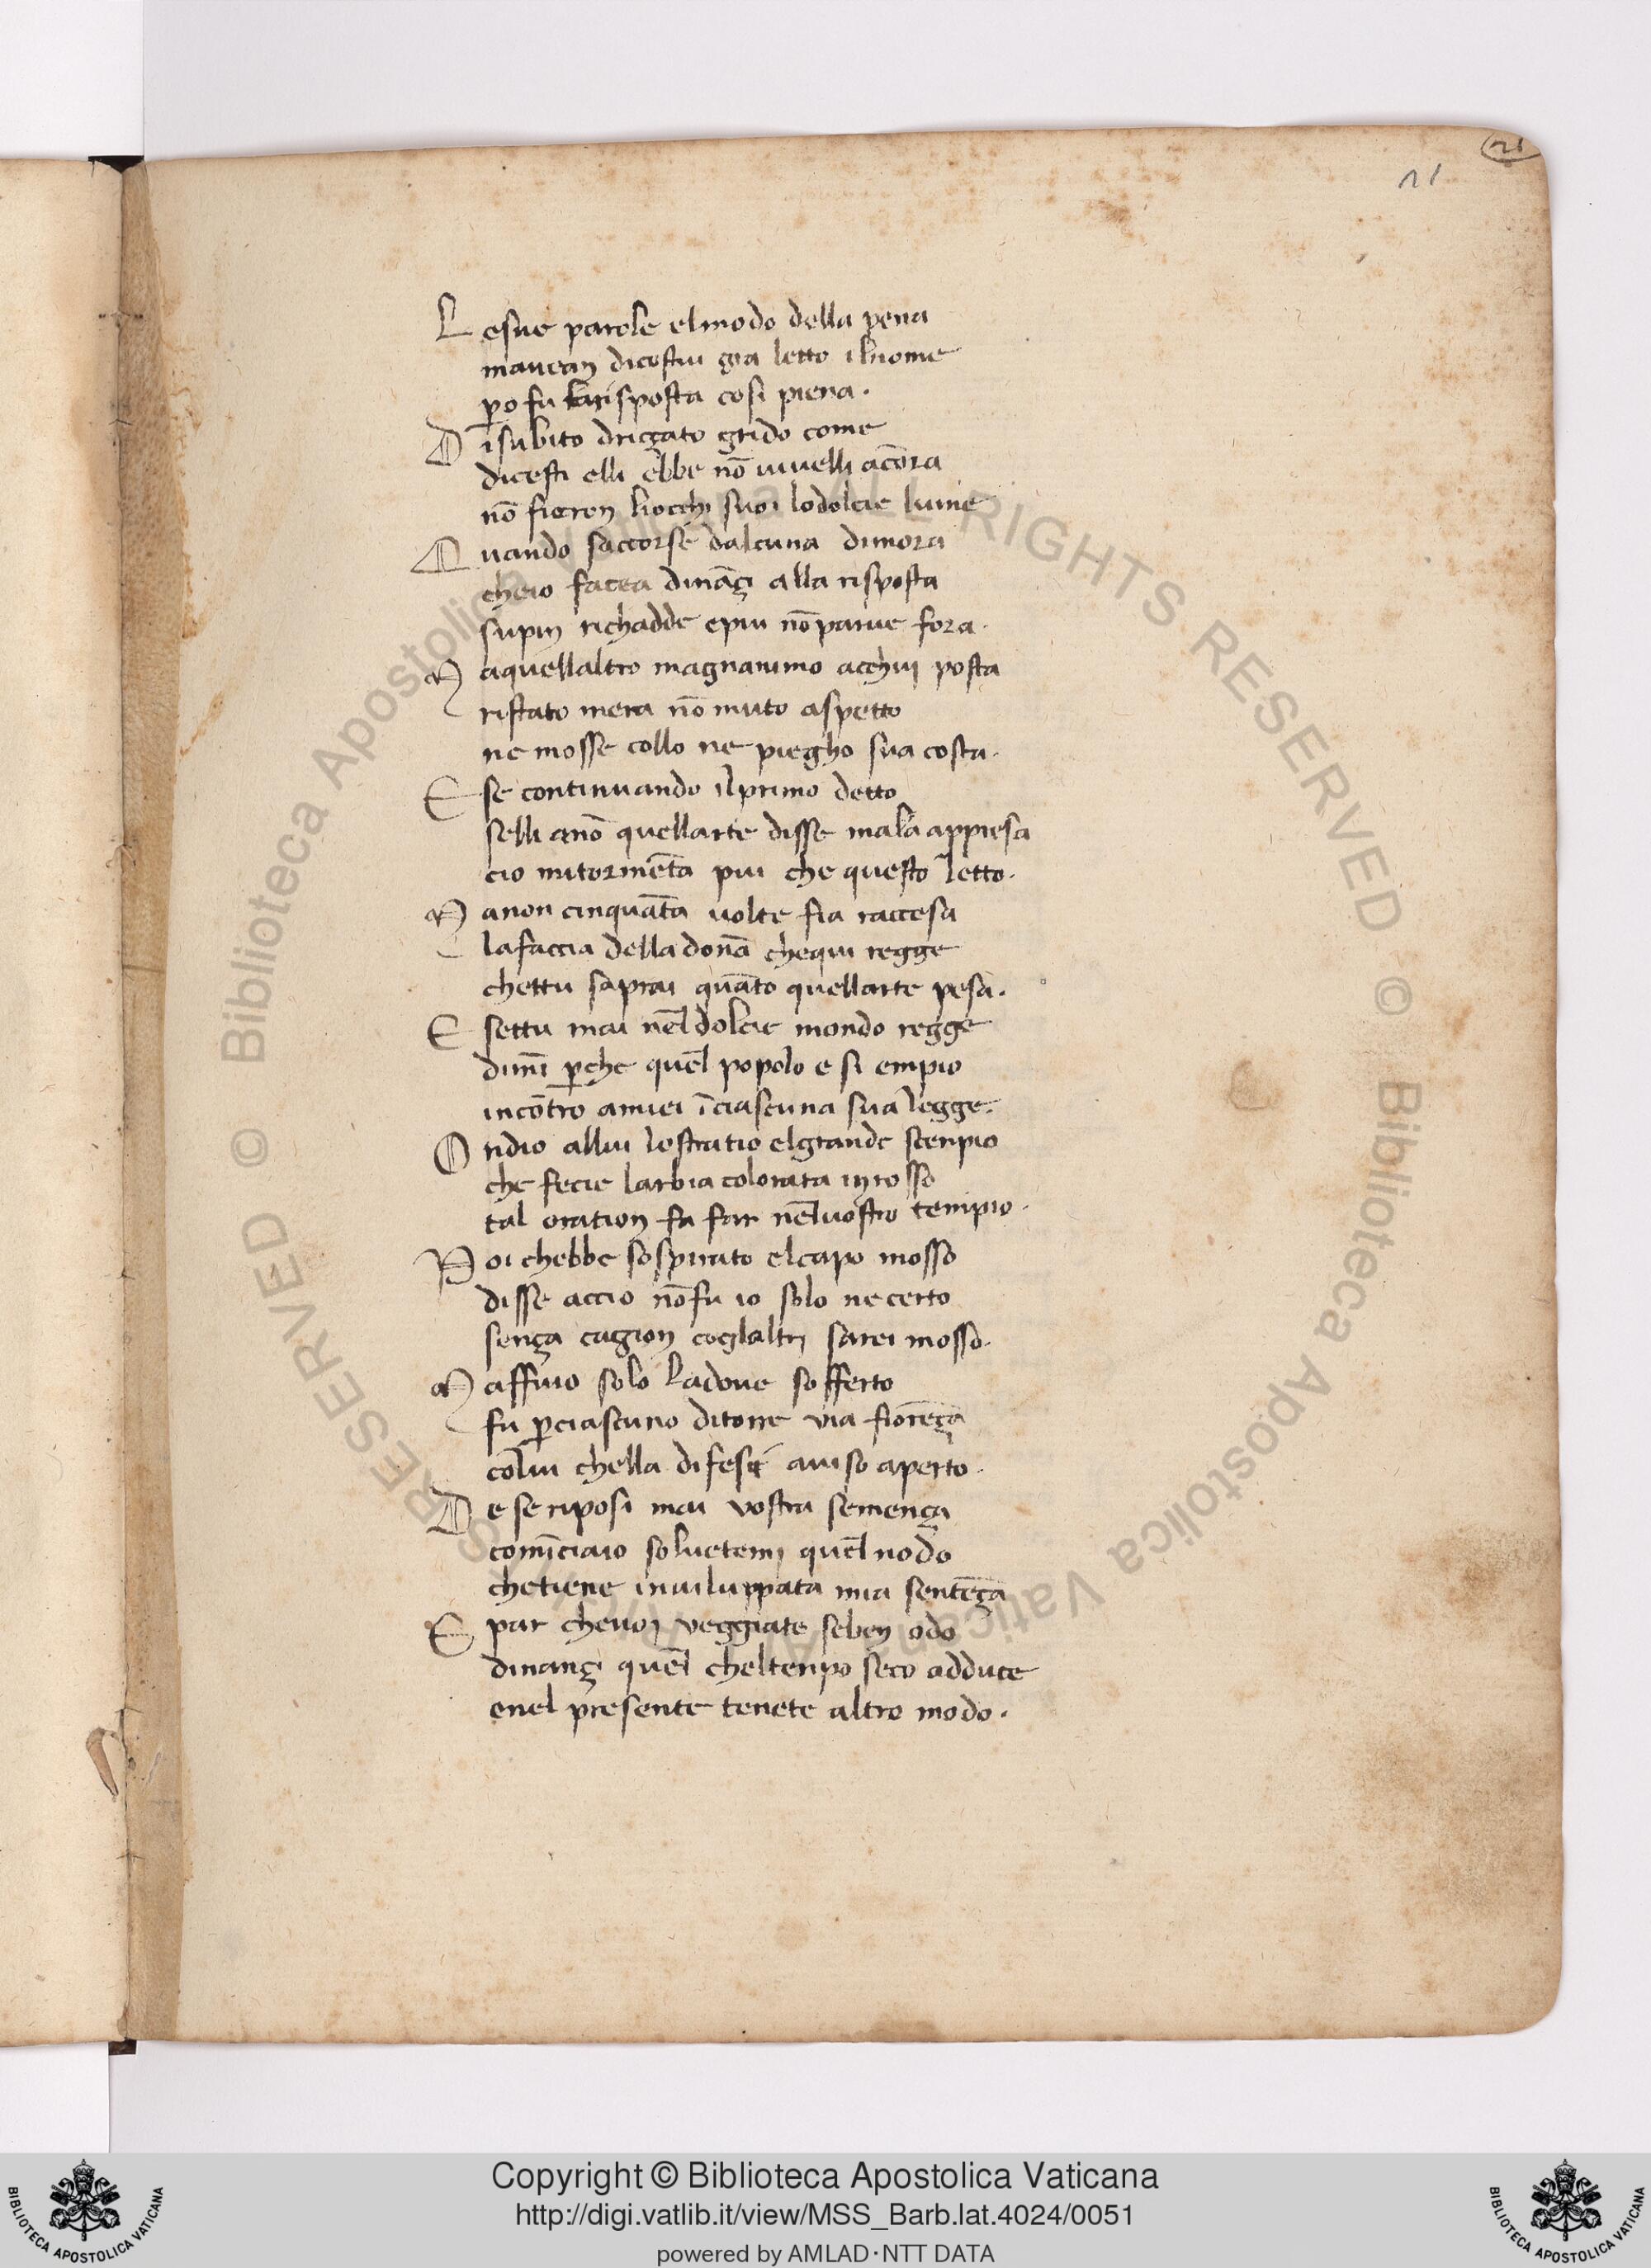 21
21
Lesue parole elmodo della pena
mauean dicostui gia letto ilnome
ꝑo fu larisposta cosi piena.
Disubito driççato grido come
dicesti elli ebbe nō viuelli acōra
nō fieron liocchi suoi lodolcie lume
Quando saccorse dalcuna dimora
cheio facea dināçi alla risposta
supin richadde epiu nō parue fora.
Maquellaltro magnanimo acchui posta
ristato mera nō muto aspetto
ne mosse collo ne piegho sua costa.
E se continuando ilprimo detto
selli anō quellarte disse mala appresa
cio mitormēta piu che questo letto.
Manon cinquāta uolte fia raccesa
lafaccia della donā chequi regge
chettu saprai quāto quellarte pesa.
E settu mai nēl dolcie mondo regge
dimī ꝑche quēl popolo e si empio
incōtro amiei īciascuna sua legge.
Ondio allui lostratio elgrande scempio
che fecie larbia colorata in rosso
tal oration fa far nēluostro tempio.
Poi chebbe sospirato elcapo mosso
disse accio nō fu io solo ne certo
sença cagion coglaltri sarei mosso.
Maffuio solo ladoue sofferto
fu ꝑciascuno ditorre via fiorēça
cōlui chella difesi auiso aperto.
De se riposi mai vostra semença
comīciaio soluetemi quēl nodo
chetiene inuiluppata mia sentēça
E par cheuoi veggiate seben odo
dinançi quēl cheltenpo seco adduce
enel presente tenete altro modo.
© Biblioteca Apostolica Vaticana ALL RIGHTS RESERVED
© Biblioteca Apostolica Vaticana ALL RIGHTS RESERVED
Copyright © Biblioteca Apostolica Vaticana
http://digi.vatlib.it/view/MSS_Barb.lat.4024/0051
powered by AMLAD·NTT DATA
BIBLIOTECA APOSTOLICA VATICANA
BIBLIOTECA APOSTOLICA VATICANA